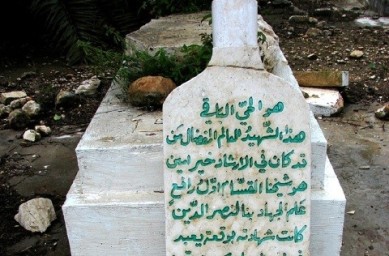 هو الحي الباقي
هذا الشهيد العالم المفضال من
قد كان في الارشاد خير امين
هو شيخنا القسّام اول رافع
علم الجهاد بنا لنصر الدين
كانت شهادته بوقعة يعبد